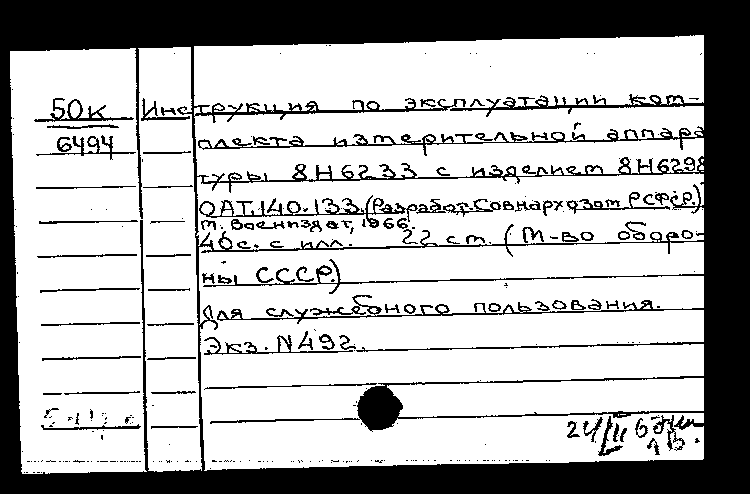 50к Инструкция по эксплуатации ком-
6494 плекта измерительной аппара
туры 8Н6233 с изделием 8Н6298
ОАТ.140.133.(Разработ.Совнархозом РСФСР.)
М. Воениздат, 1966.
40с. с илл. 22 см. (М-во оборо-
ны СССР.)
Для служебного пользования.
Экз. N492.
24/III